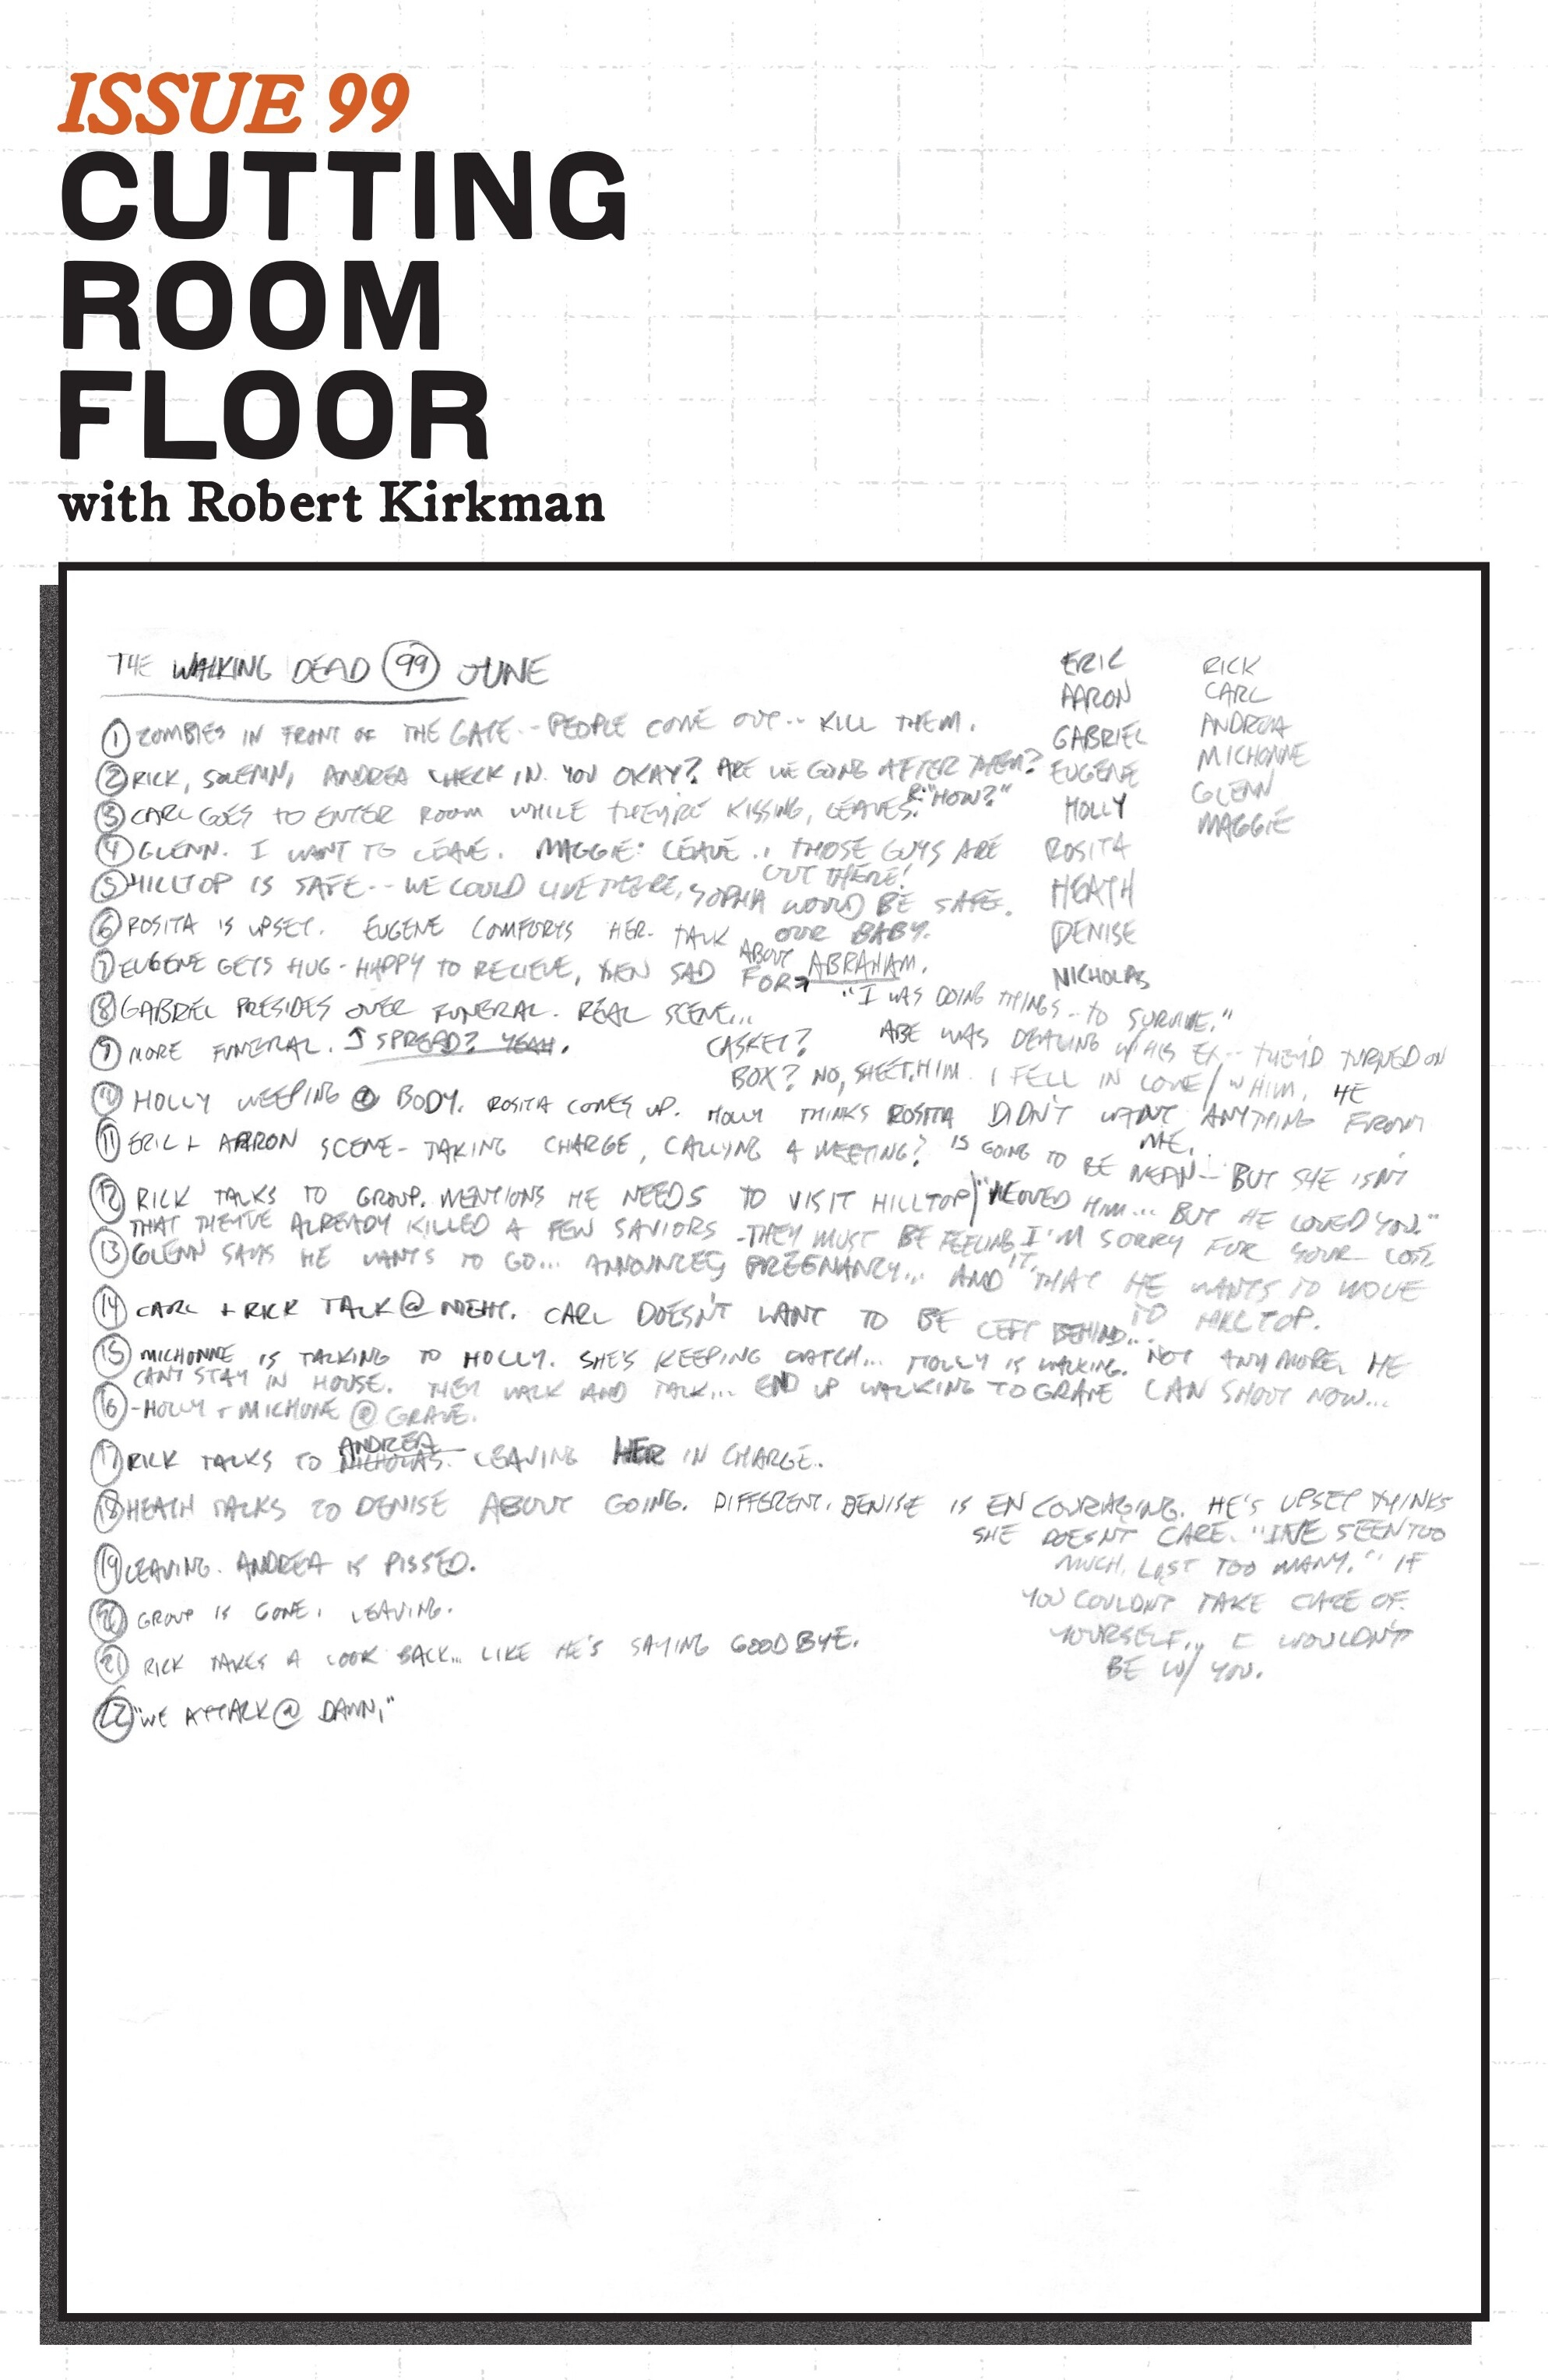 ISSUE 99
CUTTING
ROOM
FLOOR
with Robert Kirkman
THE WALKING DEAD 99 JUNE
1 ZOMBIES IN FRONT OF THE GATE -- PEOPLE COME OUT -- KILL THEM.
2 RICK, SOLEMN, ANDREA CHECK IN. YOU OKAY? ARE WE GOING AFTER THEM?
R: "HOW?"
3 CARL GOES TO ENTER ROOM WHILE THEY'RE KISSING, LEAVES.
4 GLENN. I WANT TO LEAVE. MAGGIE: LEAVE.. THOSE GUYS ARE
OUT THERE!
5 HILLTOP IS SAFE -- WE COULD LIVE THERE, SOPHIA WOULD BE SAFE.
OUR BABY.
6 ROSITA IS UPSET. EUGENE COMFORTS HER. TALK
ABOUT ABRAHAM.
7 EUGENE GETS HUG - HAPPY TO RECIEVE, THEN SAD FOR
8 GABRIEL PRESIDES OVER FUNERAL. REAL SCENE...
9 MORE FUNERAL. SPREAD? YEAH.
CASKET?
BOX? NO, SHEET.
"I WAS DOING THINGS -- TO SURVIVE."
ABE WAS DEALING W/ HIS EX -- THEY'D TURNED ON
HIM. I FELL IN LOVE W HIM. HE
DIDN'T WANT ANYTHING FROM
ME.
10 HOLLY WEEPING @ BODY. ROSITA COMES UP. HOLLY THINKS ROSITA
IS GOING TO BE MEAN -- BUT SHE ISN'T
11 ERIC + AARON SCENE - TAKING CHARGE, CALLING A MEETING?
"I LOVED HIM... BUT HE LOVED YOU."
I'M SORRY FOR YOUR LOSS
12 RICK TALKS TO GROUP. MENTIONS HE NEEDS TO VISIT HILLTOP
THAT THEY'VE ALREADY KILLED A FEW SAVIORS - THEY MUST BE FEELING
IT.
13 GLENN SAYS HE WANTS TO GO... ANNOUNCES PREGNANCY... AND THAT HE WANTS TO MOVE
TO HILLTOP.
14 CARL + RICK TALK @ NIGHT. CARL DOESN'T WANT TO BE LEFT BEHIND...
NOT ANYMORE, HE
CAN SHOOT NOW...
15 MICHONNE IS TALKING TO HOLLY. SHE'S KEEPING WATCH... HOLLY IS WALKING.
CAN'T STAY IN HOUSE. THEY WALK AND TALK... END UP WALKING TO GRAVE
16 - HOLLY + MICHONE @ GRAVE.
17 RICK TALKS TO NICHOLAS. ANDREA LEAVING HER IN CHARGE.
18 HEATH TALKS TO DENISE ABOUT GOING. DIFFERENT. DENISE IS ENCOURAGING. HE'S UPSET THINKS
SHE DOESNT CARE. "I'VE SEEN TOO
MUCH, LOST TOO MANY." IF
YOU COULDN'T TAKE CARE OF
YOURSELF... I WOULDN'T
BE W/ YOU.
19 LEAVING. ANDREA IS PISSED.
20 GROUP IS GONE. LEAVING.
21 RICK TAKES A LOOK BACK... LIKE HE'S SAYING GOODBYE.
22 "WE ATTACK @ DAWN."
ERIC
AARON
GABRIEL
EUGENE
HOLLY
ROSITA
HEATH
DENISE
NICHOLAS
RICK
CARL
ANDREA
MICHONNE
GLENN
MAGGIE